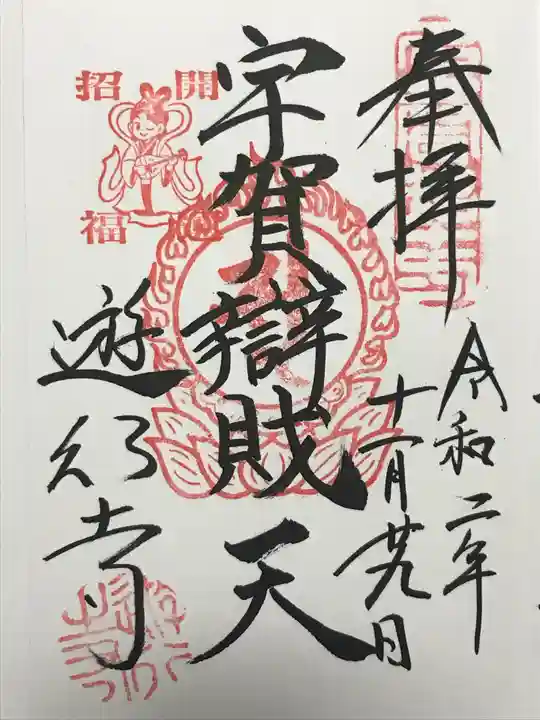 奉拝
令和二年
十一月廿九日
宇賀辯財天
開運
招福
遊行寺